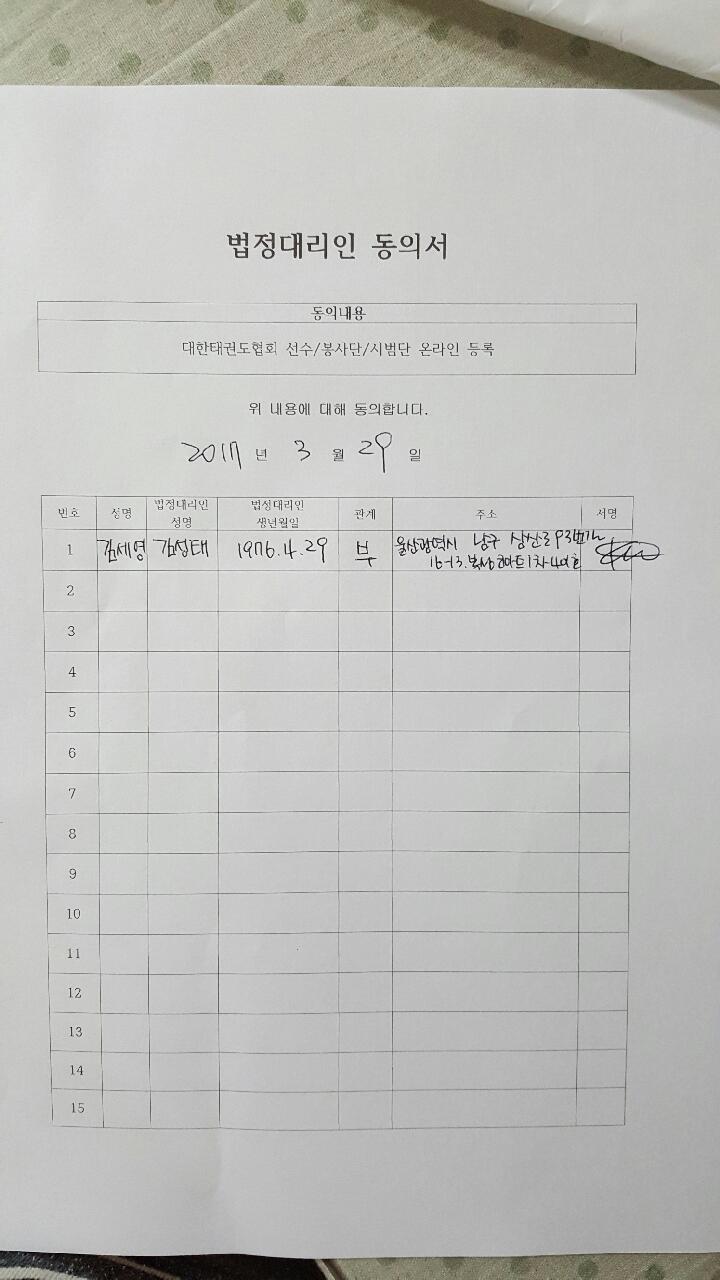 법정대리인 동의서
동의내용
대한태권도협회 선수/봉사단/시범단 온라인 등록
위 내용에 대해 동의합니다.
2017 년 3 월 29 일
번호 성명 법정대리인 성명 법정대리인 생년월일 관계 주소 서명
1 김세영 김성태 1976.4.29 부 울산광역시 남구 삼산로93번길
16-13. 코아트1차
2
3
4
5
6
7
8
9
10
11
12
13
14
15